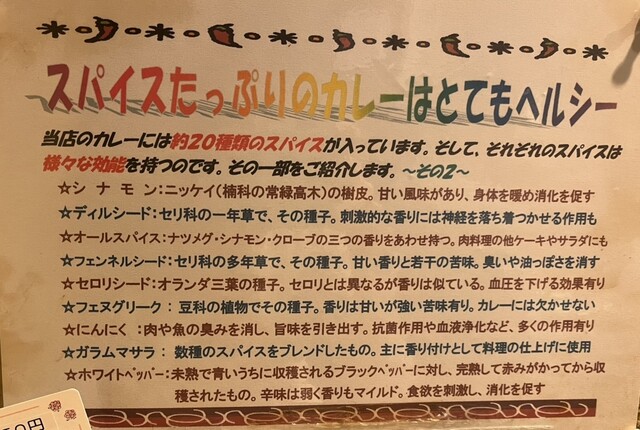 スパイスたっぷりのカレーはとてもヘルシー
当店のカレーには約20種類のスパイスが入っています。そして、それぞれのスパイスは
様々な効能を持つのです。その一部をご紹介します。～その2～
☆シナモン:ニッケイ(楠科の常緑高木)の樹皮。甘い風味があり、身体を暖め消化を促す
☆ディルシード:セリ科の一年草で、その種子。刺激的な香りには神経を落ち着つかせる作用も
☆オールスパイス:ナツメグ・シナモン・クローブの三つの香りをあわせ持つ。肉料理の他ケーキやサラダにも
☆フェンネルシード:セリ科の多年草で、その種子。甘い香りと若干の苦味。臭いや油っぽさを消す
☆セロリシード:オランダ三葉の種子。セロリとは異なるが香りは似ている。血圧を下げる効果有り
☆フェヌグリーク: 豆科の植物でその種子。香りは甘いが強い苦味有り。カレーには欠かせない
☆にんにく :肉や魚の臭みを消し、旨味を引き出す。抗菌作用や血液浄化など、多くの作用有り
☆ガラムマサラ: 数種のスパイスをブレンドしたもの。主に香り付けとして料理の仕上げに使用
☆ホワイトペッパー:未熟で青いうちに収穫されるブラックペッパーに対し、完熟して赤みがかってから収
穫されたもの。辛味は弱く香りもマイルド。食欲を刺激し、消化を促す
50円